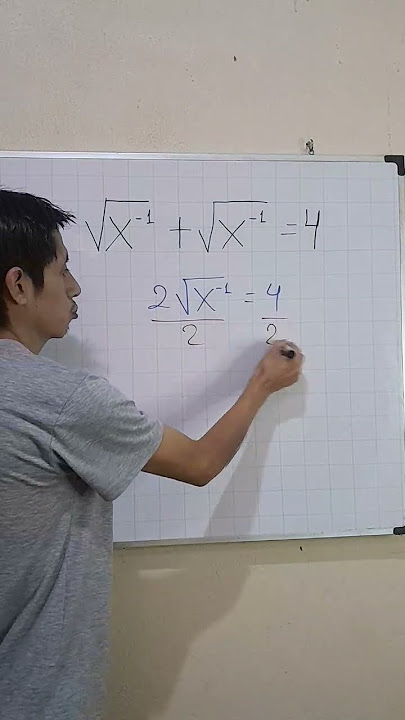 √x⁻¹ + √x⁻¹ = 4
2√x⁻¹ = 4
2 2